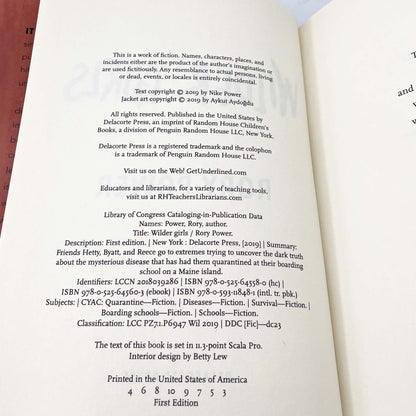 This is a work of fiction. Names, characters, places, and
incidents either are the product of the author's imagination or
are used fictitiously. Any resemblance to actual persons, living
or dead, events, or locales is entirely coincidental.
Text copyright © 2019 by Nike Power
Jacket art copyright © 2019 by Aykut Aydoğdu
All rights reserved. Published in the United States by
Delacorte Press, an imprint of Random House Children's
Books, a division of Penguin Random House LLC, New York.
Delacorte Press is a registered trademark and the colophon
is a trademark of Penguin Random House LLC.
Visit us on the Web! GetUnderlined.com
Educators and librarians, for a variety of teaching tools,
visit us at RHTeachersLibrarians.com
Library of Congress Cataloging-in-Publication Data
Names: Power, Rory, author.
Title: Wilder girls / Rory Power.
Description: First edition. | New York : Delacorte Press, [2019] | Summary:
Friends Hetty, Byatt, and Reece go to extremes trying to uncover the dark truth
about the mysterious disease that has had them quarantined at their boarding
school on a Maine island.
Identifiers: LCCN 2018039286 | ISBN 978-0-525-64558-0 (hc) |
ISBN 978-0-525-64560-3 (ebook) | ISBN 978-0-593-11848-1 (intl. tr. pbk.)
Subjects: | CYAC: Quarantine—Fiction. | Diseases—Fiction. | Survival—Fiction. |
Boarding schools—Fiction. | Schools—Fiction.
Classification: LCC PZ7.1.P6947 Wil 2019 | DDC [Fic]—dc23
The text of this book is set in 11.3-point Scala Pro.
Interior design by Betty Lew
Printed in the United States of America
4 6 8 10 9 7 5 3
First Edition
and